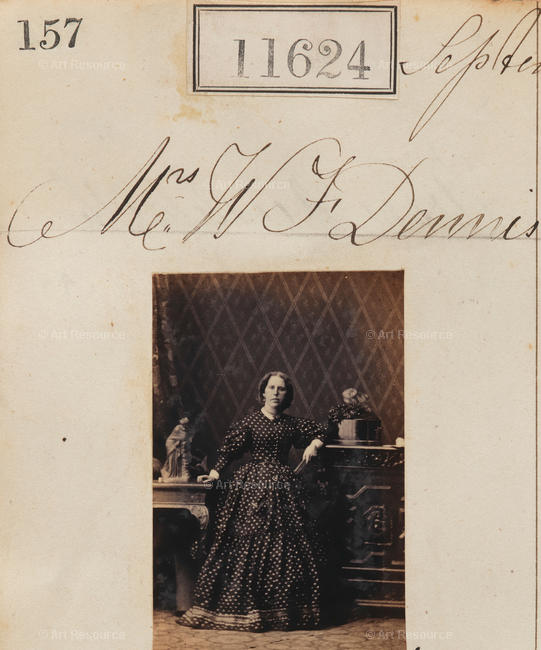 157
11624
Mrs. W F Dennis
© Art Resource
© Art Resource
© Art Resource
© Art Resource
© Art Resource
© Art Resource
© Art Resource
© Art Resource